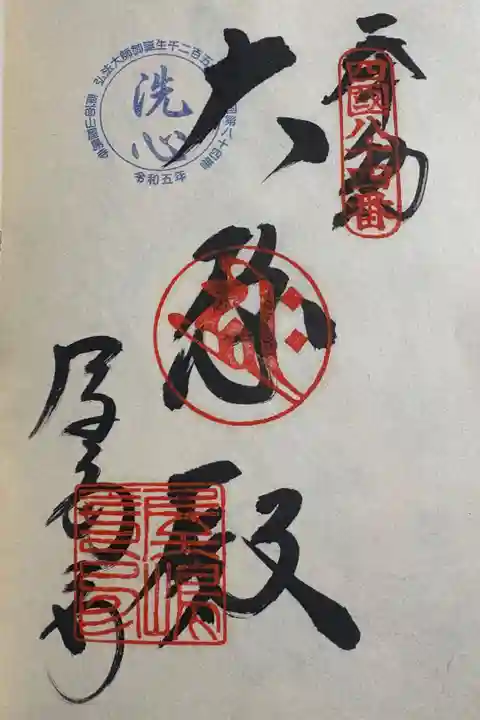 奉納
四國八十四番
大悲殿
屋島寺
屋嶋寺
弘法大師御誕生千二百五
四国第八十四番
洗心
令和五年